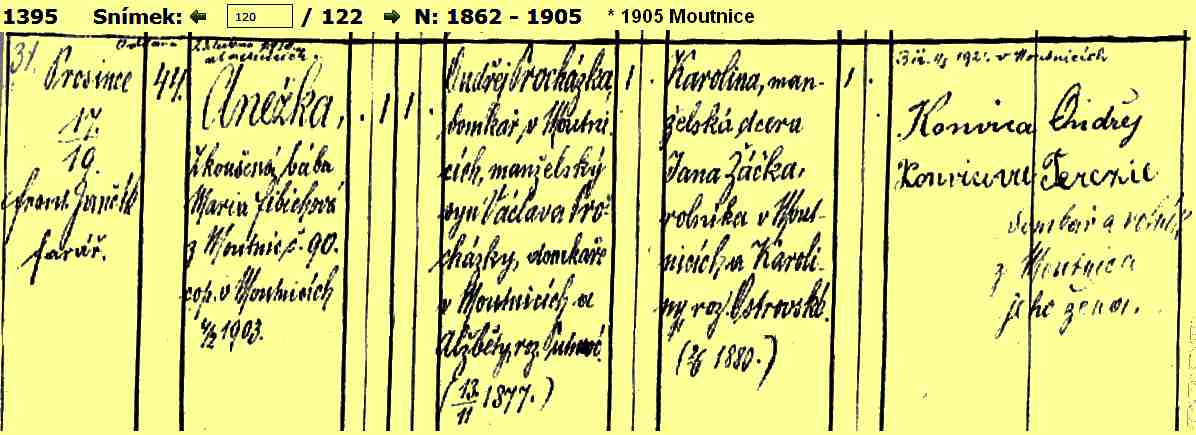 1395 Snímek: 120 / 122 N: 1862 - 1905 * 1905 Moutnice
31.
Prosince
17.
19.
farář.
44.
Anežka,
zkoušená bába
Maria
z Moutnic č. 90.
cop. v Moutnicích
1903.
1 1
Ondřej Procházka,
domkář, v Moutni-
cích, manželský
syn Václava Pro-
cházky, domkáře
v Moutnicích a
Alžběty, roz.
(13./11 1877.)
1
Karolina, man-
želská dcera
Jana Žáčka,
rolníka v Mout-
nicích a Karoli-
ny roz. Ostrovské.
(2/6 1880.)
1
v Moutnicích
Konvica Ondřej
Terezie
domkář a
z Moutnica
jeho žena.